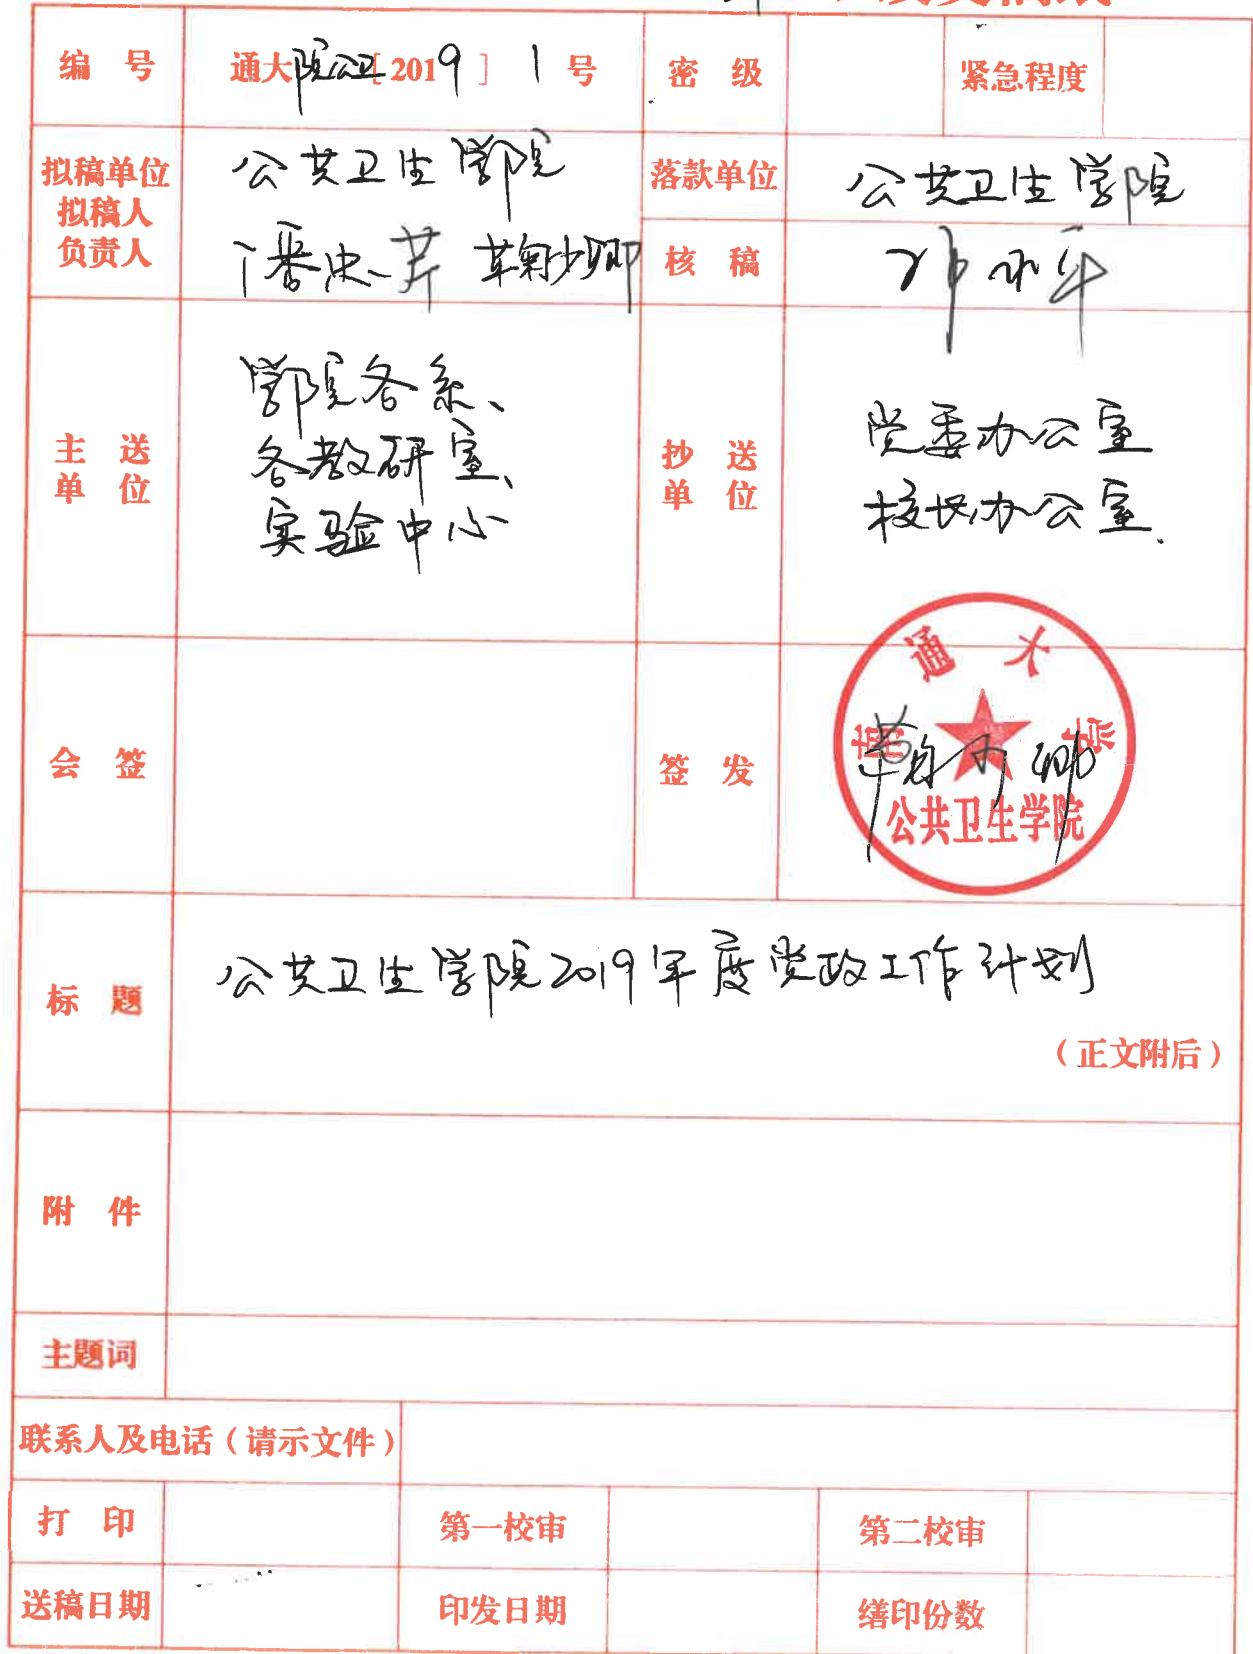 编 号 通大院公卫[2019] 1 号 密 级 紧急程度
拟稿单位 公共卫生学院 落款单位 公共卫生学院
拟稿人
负责人 核 稿
学院各系、
各教研室、
实验中心
主 送
单 位
抄 送
单 位
党委办公室
校长办公室.
会 签 签 发
南通大学
公共卫生学院
标 题 公共卫生学院2019年度党政工作计划
（正文附后）
附 件
主题词
联系人及电话（请示文件）
打 印 第一校审 第二校审
送稿日期 印发日期 缮印份数